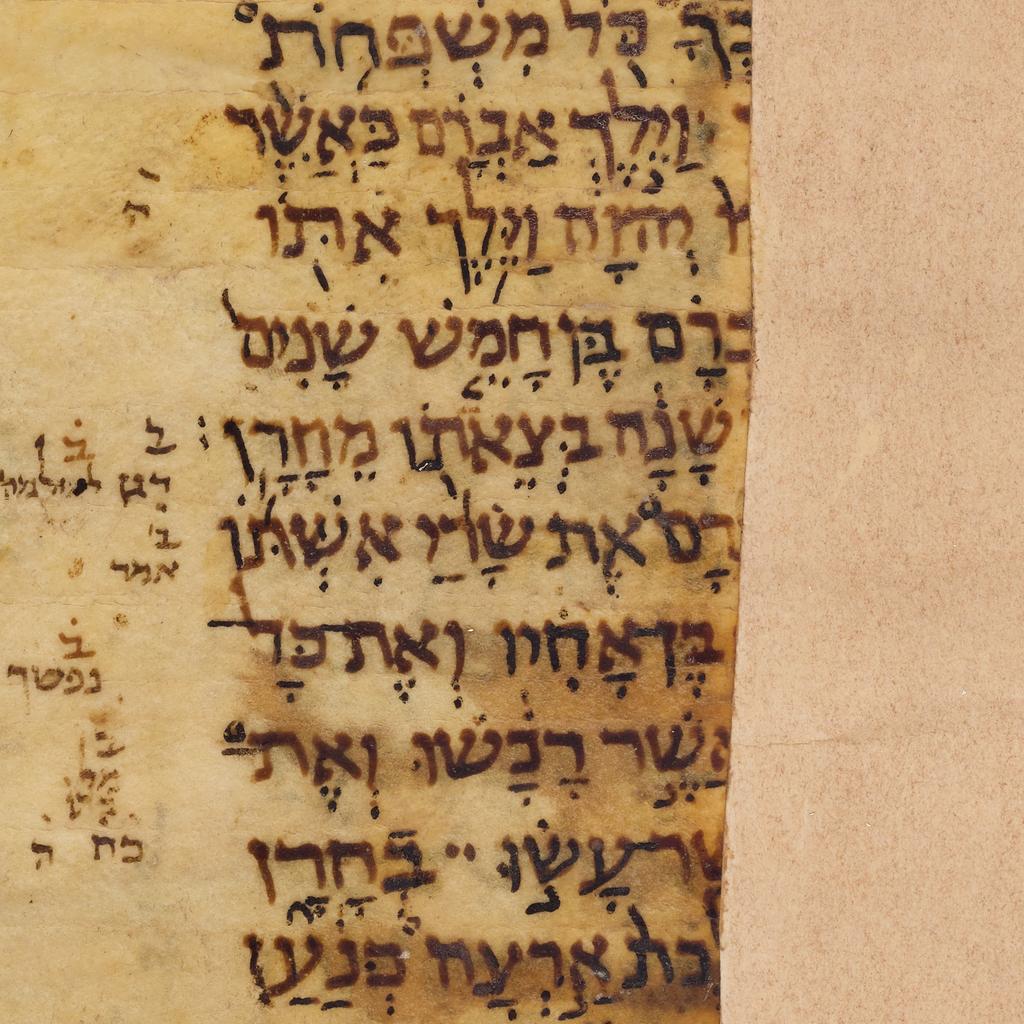 בְךָ כֹּל מִשְׁפְּחֹת
וַיֵּלֶךְ אַבְרָם כַּאֲשֶׁר
יְהוָה וַיֵּלֶךְ אִתּוֹ
בְרָם בֶּן חָמֵשׁ שָׁנִים
שָׁנָה בְּצֵאתוֹ מֵחָרָן׃
רָם אֶת שָׂרַי אִשְׁתּוֹ
בֶּן אָחִיו וְאֶת כָּל
אֲשֶׁר רָכָשׁוּ וְאֶת
שֶׁר עָשׂוּ בְחָרָן
כֶת אַרְצָה כְּנַעַן
ה
ב ב
ב
אמר
ב
נפשך